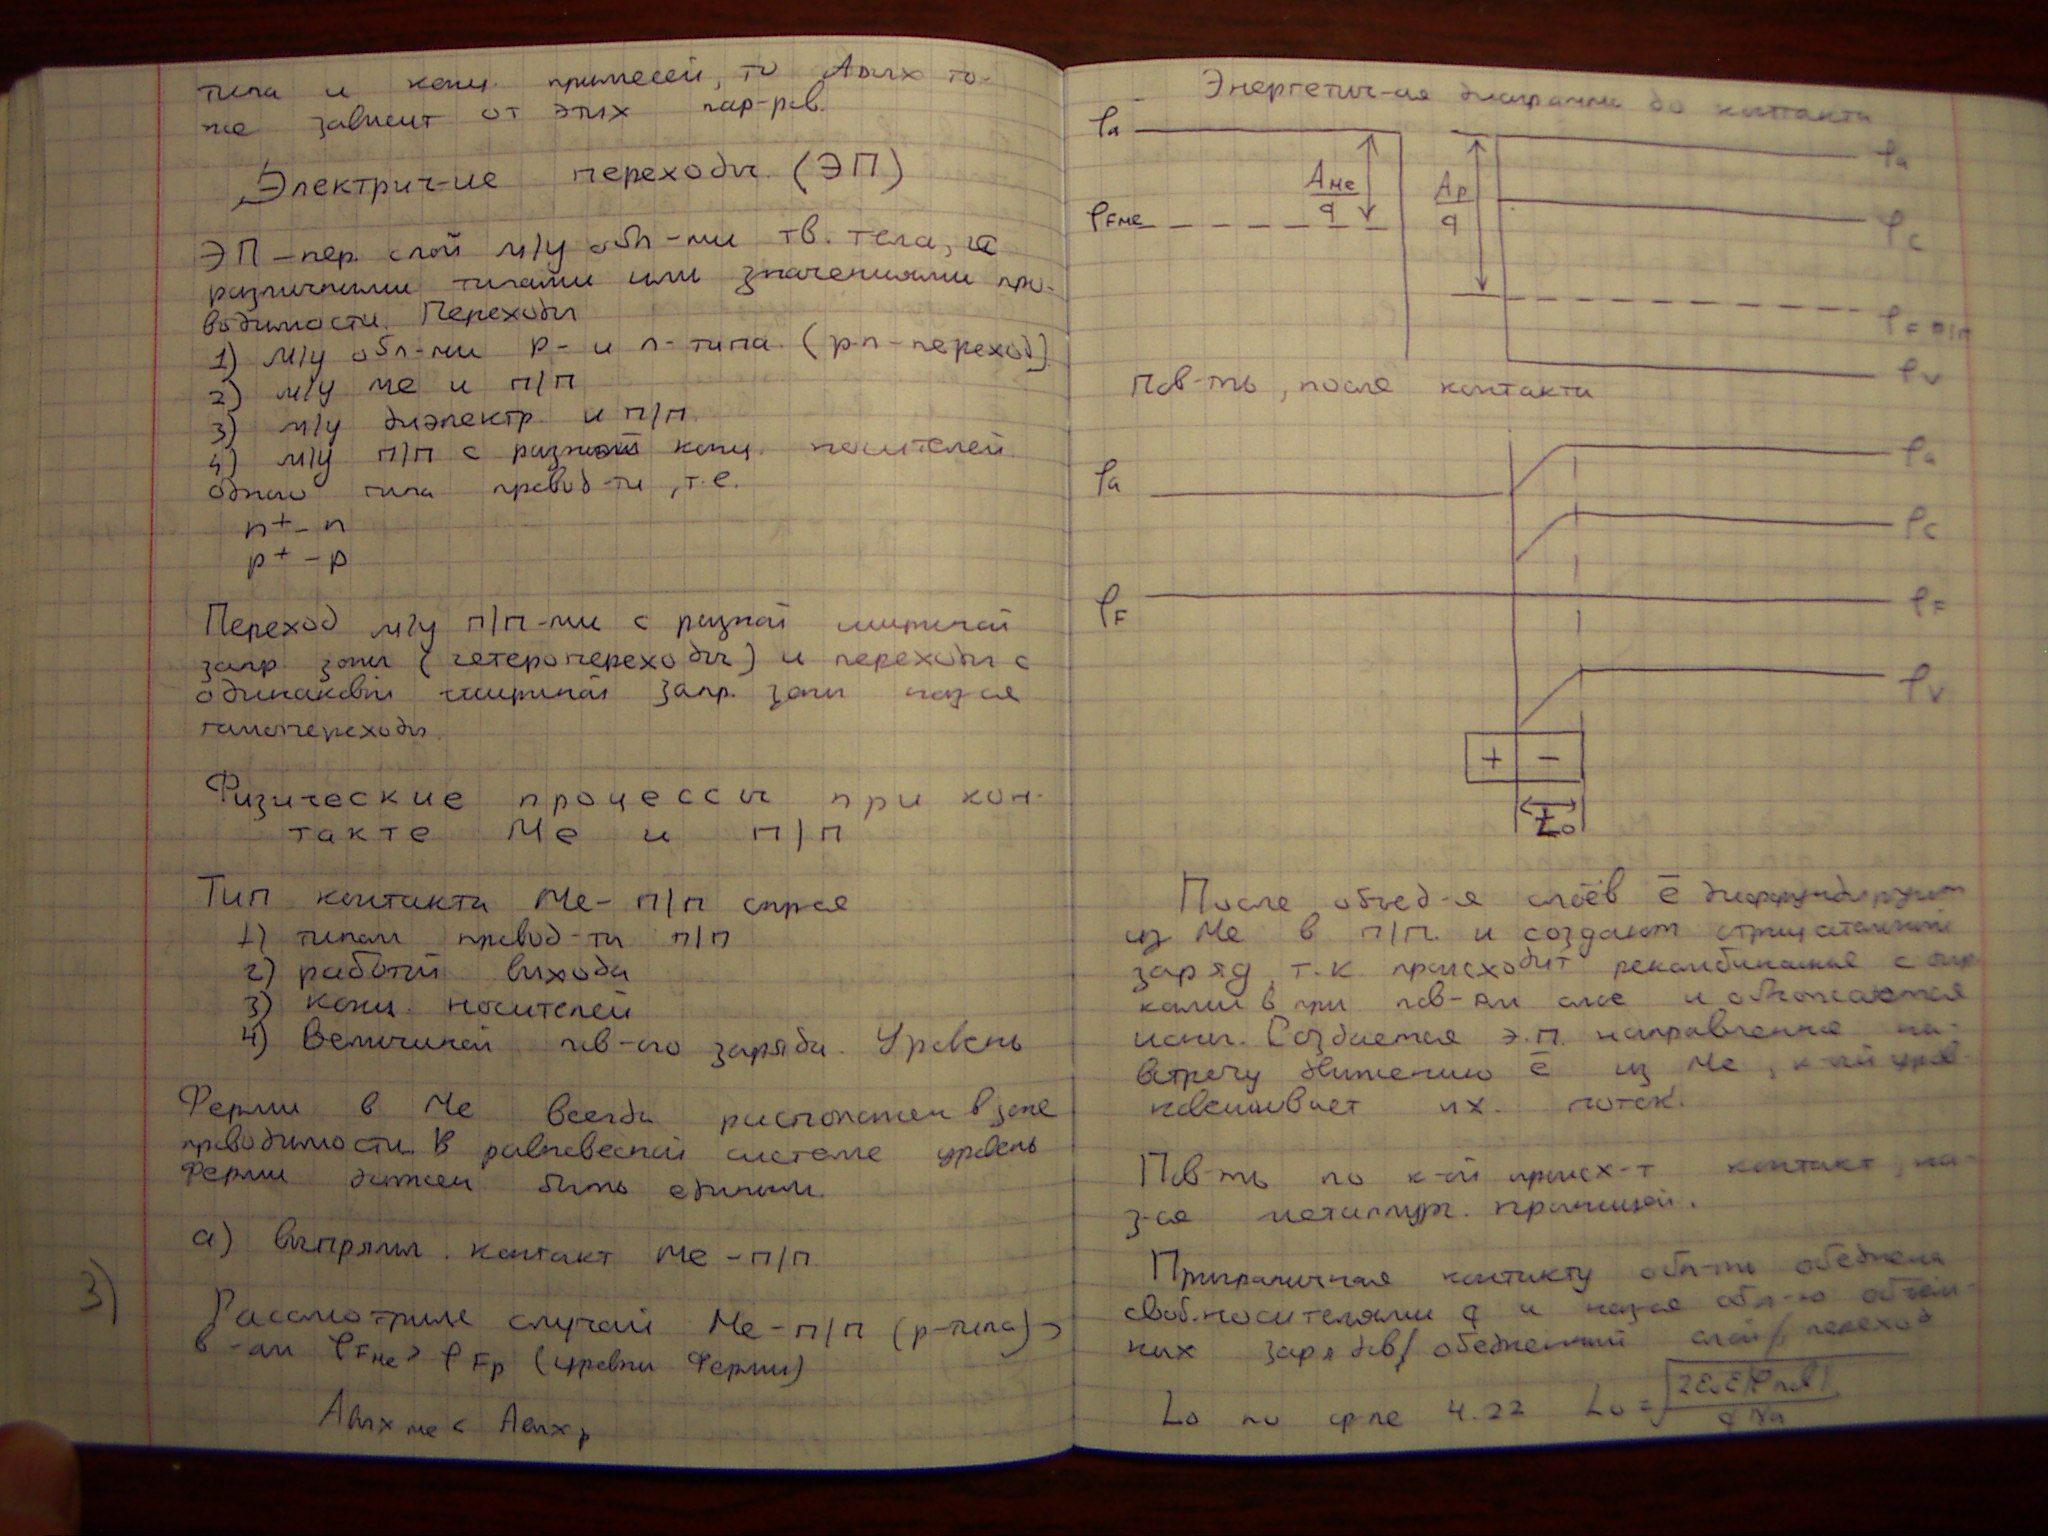 типа и конц. примесей, то Aвых то-
же зависит от этих пар-ров.
Электрич-ие переходы (ЭП)
ЭП – пер. слой м/у обл-ми тв. тела, с
различными типами или значениями про-
водимости. Переходы
1) м/у обл-ми p- и n-типа (p-n-переход)
2) м/у ме и п/п
3) м/у диэлектр. и п/п.
4) м/у п/п с разной конц. носителей
одного типа провод-ти, т.е.
n⁺ - n
p⁺ - p
Переход м/у п/п-ми с разной шириной
запр. зоны (гетеропереходы) и переходы с
одинаковой шириной запр. зоны наз-ся
гомопереходы.
Физические процессы при кон-
такте Ме и п/п
Тип контакта Ме - п/п опр-ся
1) типом провод-ти п/п
2) работой выхода
3) конц. носителей
4) Величиной пов-ого заряда. Уровень
Ферми в Ме всегда расположен в зоне
проводимости. В равновесной системе уровень
Ферми должен быть единым.
а) выпрямл. контакт Ме – п/п
3)
Рассмотрим случай Ме – п/п (p-типа)
в -ом φFме > φFp (уровни Ферми)
Aвых ме < Aвых p
Энергетич-ая диаграмма до контакта
φa φa
Aме/q Aр/q
φFме φc
φF п/п
φv
Пов-ть, после контакта
φa φa
φc
φF φF
φv
+ −
L₀
После объед-я слоёв ē диффундируют
из Ме в п/п. и создают отрицательный
заряд, т.к происходит рекомбинация с дыр
ками в при пов-ом слое и обнажаются
ионы. Создается э.п. направленное на-
встречу движению ē из Ме, к-ый урав
новешивает их поток.
Пов-ть по к-ой происх-т контакт, на-
з-ся металлург. границей.
Приграничная контакту обл-ть обеднена
своб. носителями q и наз-ся обл-ю объём-
ных зарядов/обедненный слой/переход
L₀ по ф-ле 4.22 L₀ = √(2ε₀ε|φпов|/qNa)